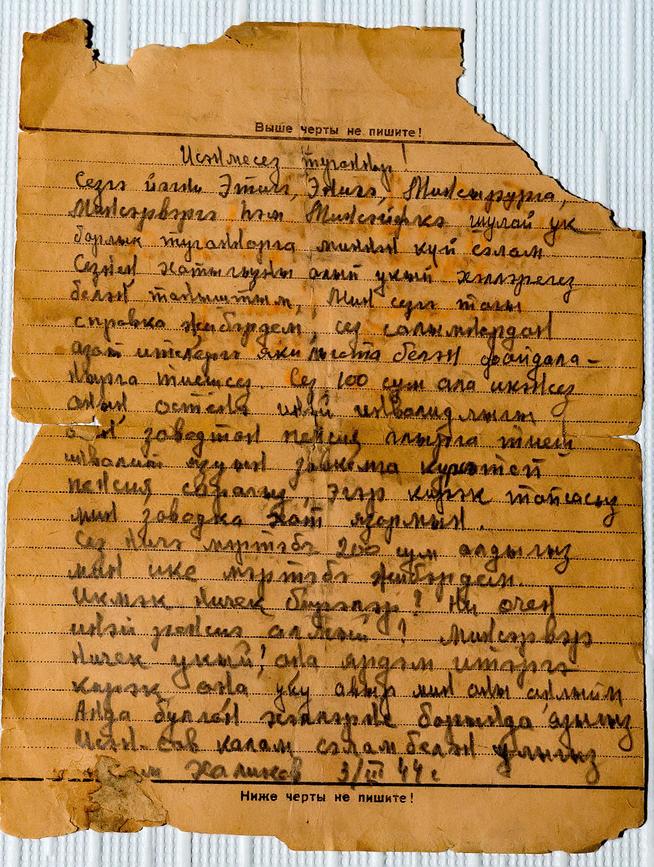 Выше черты не пишите!
Исэнмесез туганнар!
Сезгэ Этигэ, Энигэ,
Минсэрвэргэ һэм Минсэйфкэ шулай ук
барлык туганнарга миннэн куп сэлам
Сезнен хатыгызны алып укып хэллэрегез
белэн таныштым, Мин сезгэ тагы
справка жибэрдем, сез салымнардан
азат ителергэ яки льгота белэн файдала-
нырга тиешсез. Сез 100 сум ала икэнсез
анын остенэ инэй инвалидлыгы
заводтан пенсия алырга тиеш
инвалит язуын завкома курсэтеп
пенсия сорагыз, Эгэр кирэк тапсагыз
мин заводка хат язармын.
Сез ничэ мэртэбэ 200 сум алдыгыз
мин ике мэртэбэ жибэрдем.
Икмэк ничек бирэлэр? Ни очен
инэй пенсия алмый? Минсэрвэр
Ничек укый! ана ярдэм итэргэ
кирэк ана уку авыр мин аны анлыйм
Анда булган хэллэрне барында языгыз
Исэн-сав калам сэлам белэн улыгыз
Халиков 3/III 44 г
Ниже черты не пишите!